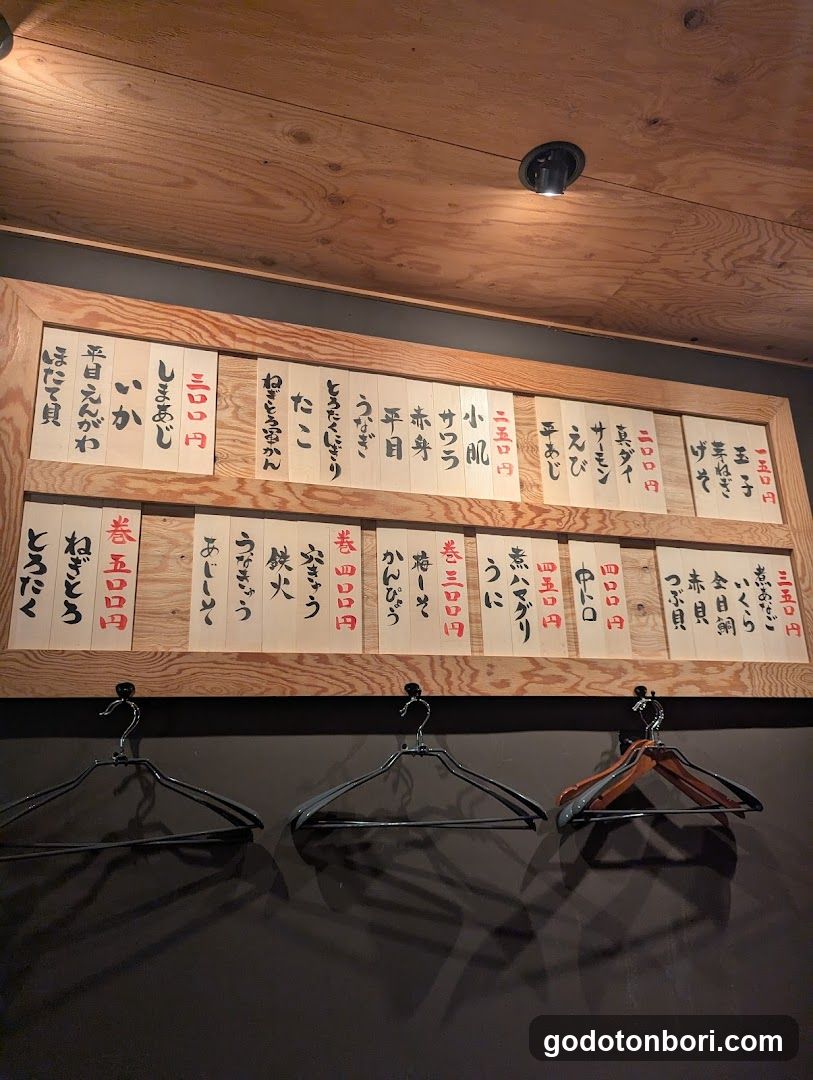 一五〇円
玉子
芽ねぎ
げそ
二〇〇円
真ダイ
サーモン
えび
平あじ
二五〇円
小肌
サワラ
赤身
平目
うなぎ
とろたくにぎり
たこ
ねぎとろ軍かん
三〇〇円
しまあじ
いか
平目えんがわ
ほたて貝
三五〇円
煮あなご
いくら
金目鯛
赤貝
つぶ貝
四〇〇円
中トロ
四五〇円
煮ハマグリ
うに
巻三〇〇円
梅しそ
かんぴょう
巻四〇〇円
穴きゅう
鉄火
うなきゅう
あじしそ
巻五〇〇円
ねぎとろ
とろたく
godotonbori.com